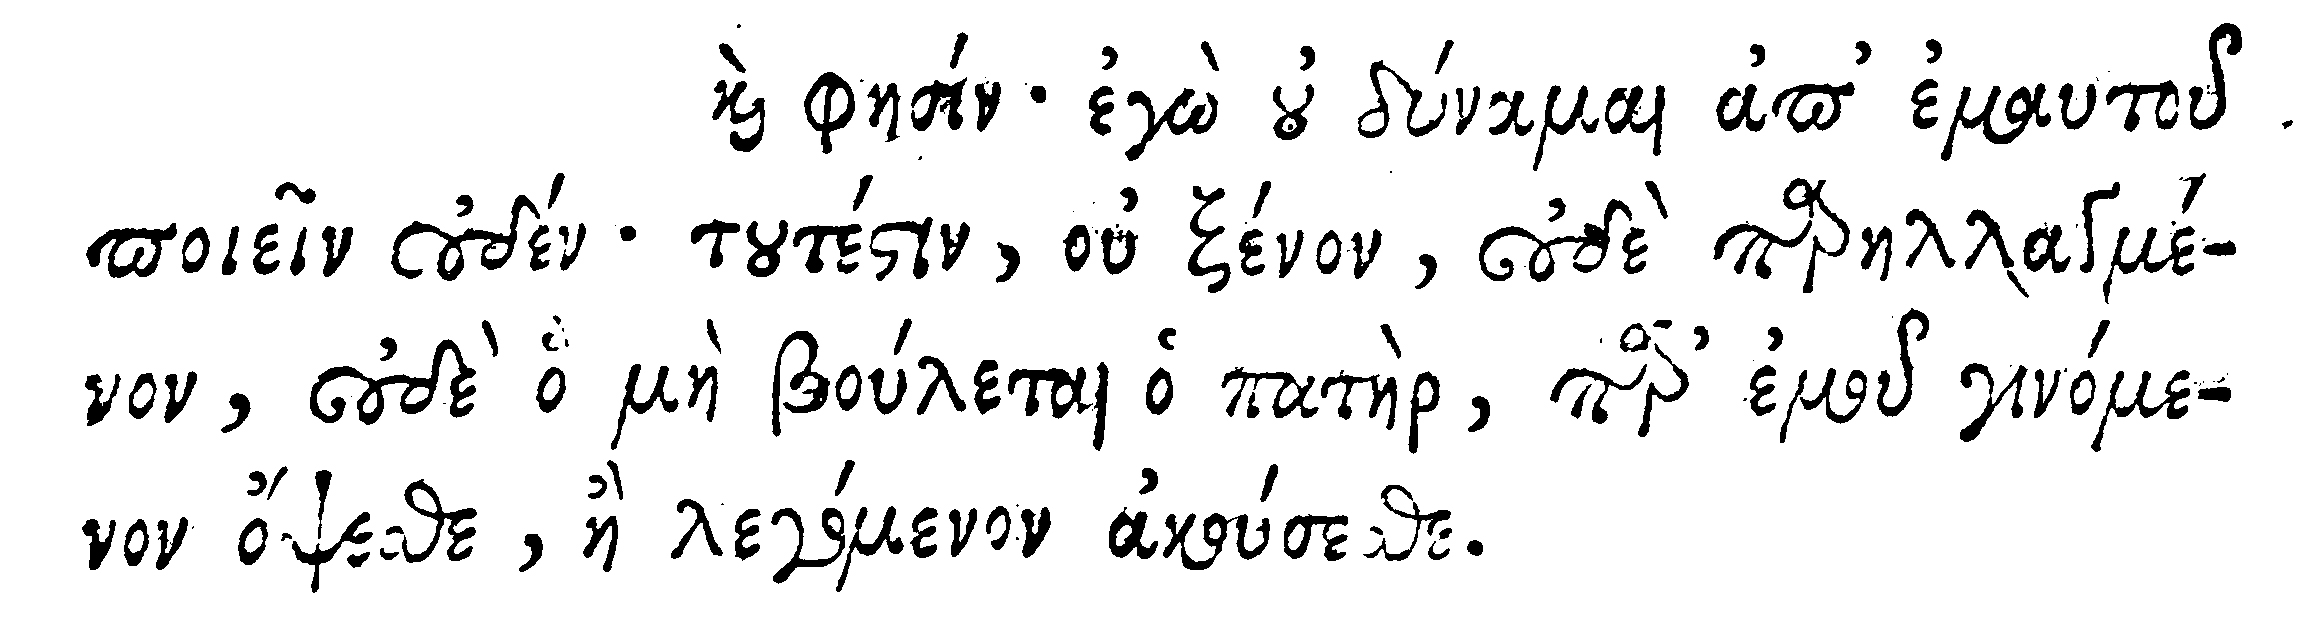 καὶ φησίν· ἐγὼ οὐ δύναμαι ἀπ' ἐμαυτοῦ
ποιεῖν οὐδέν· τουτέστιν, οὐ ξένον, οὐδὲ παρηλλαγμέ-
νον, οὐδὲ ὃ μὴ βούλεται ὁ πατὴρ, παρ' ἐμοῦ γινόμε-
νον ὄψεσθε, ἢ λεγόμενον ἀκούσεσθε.